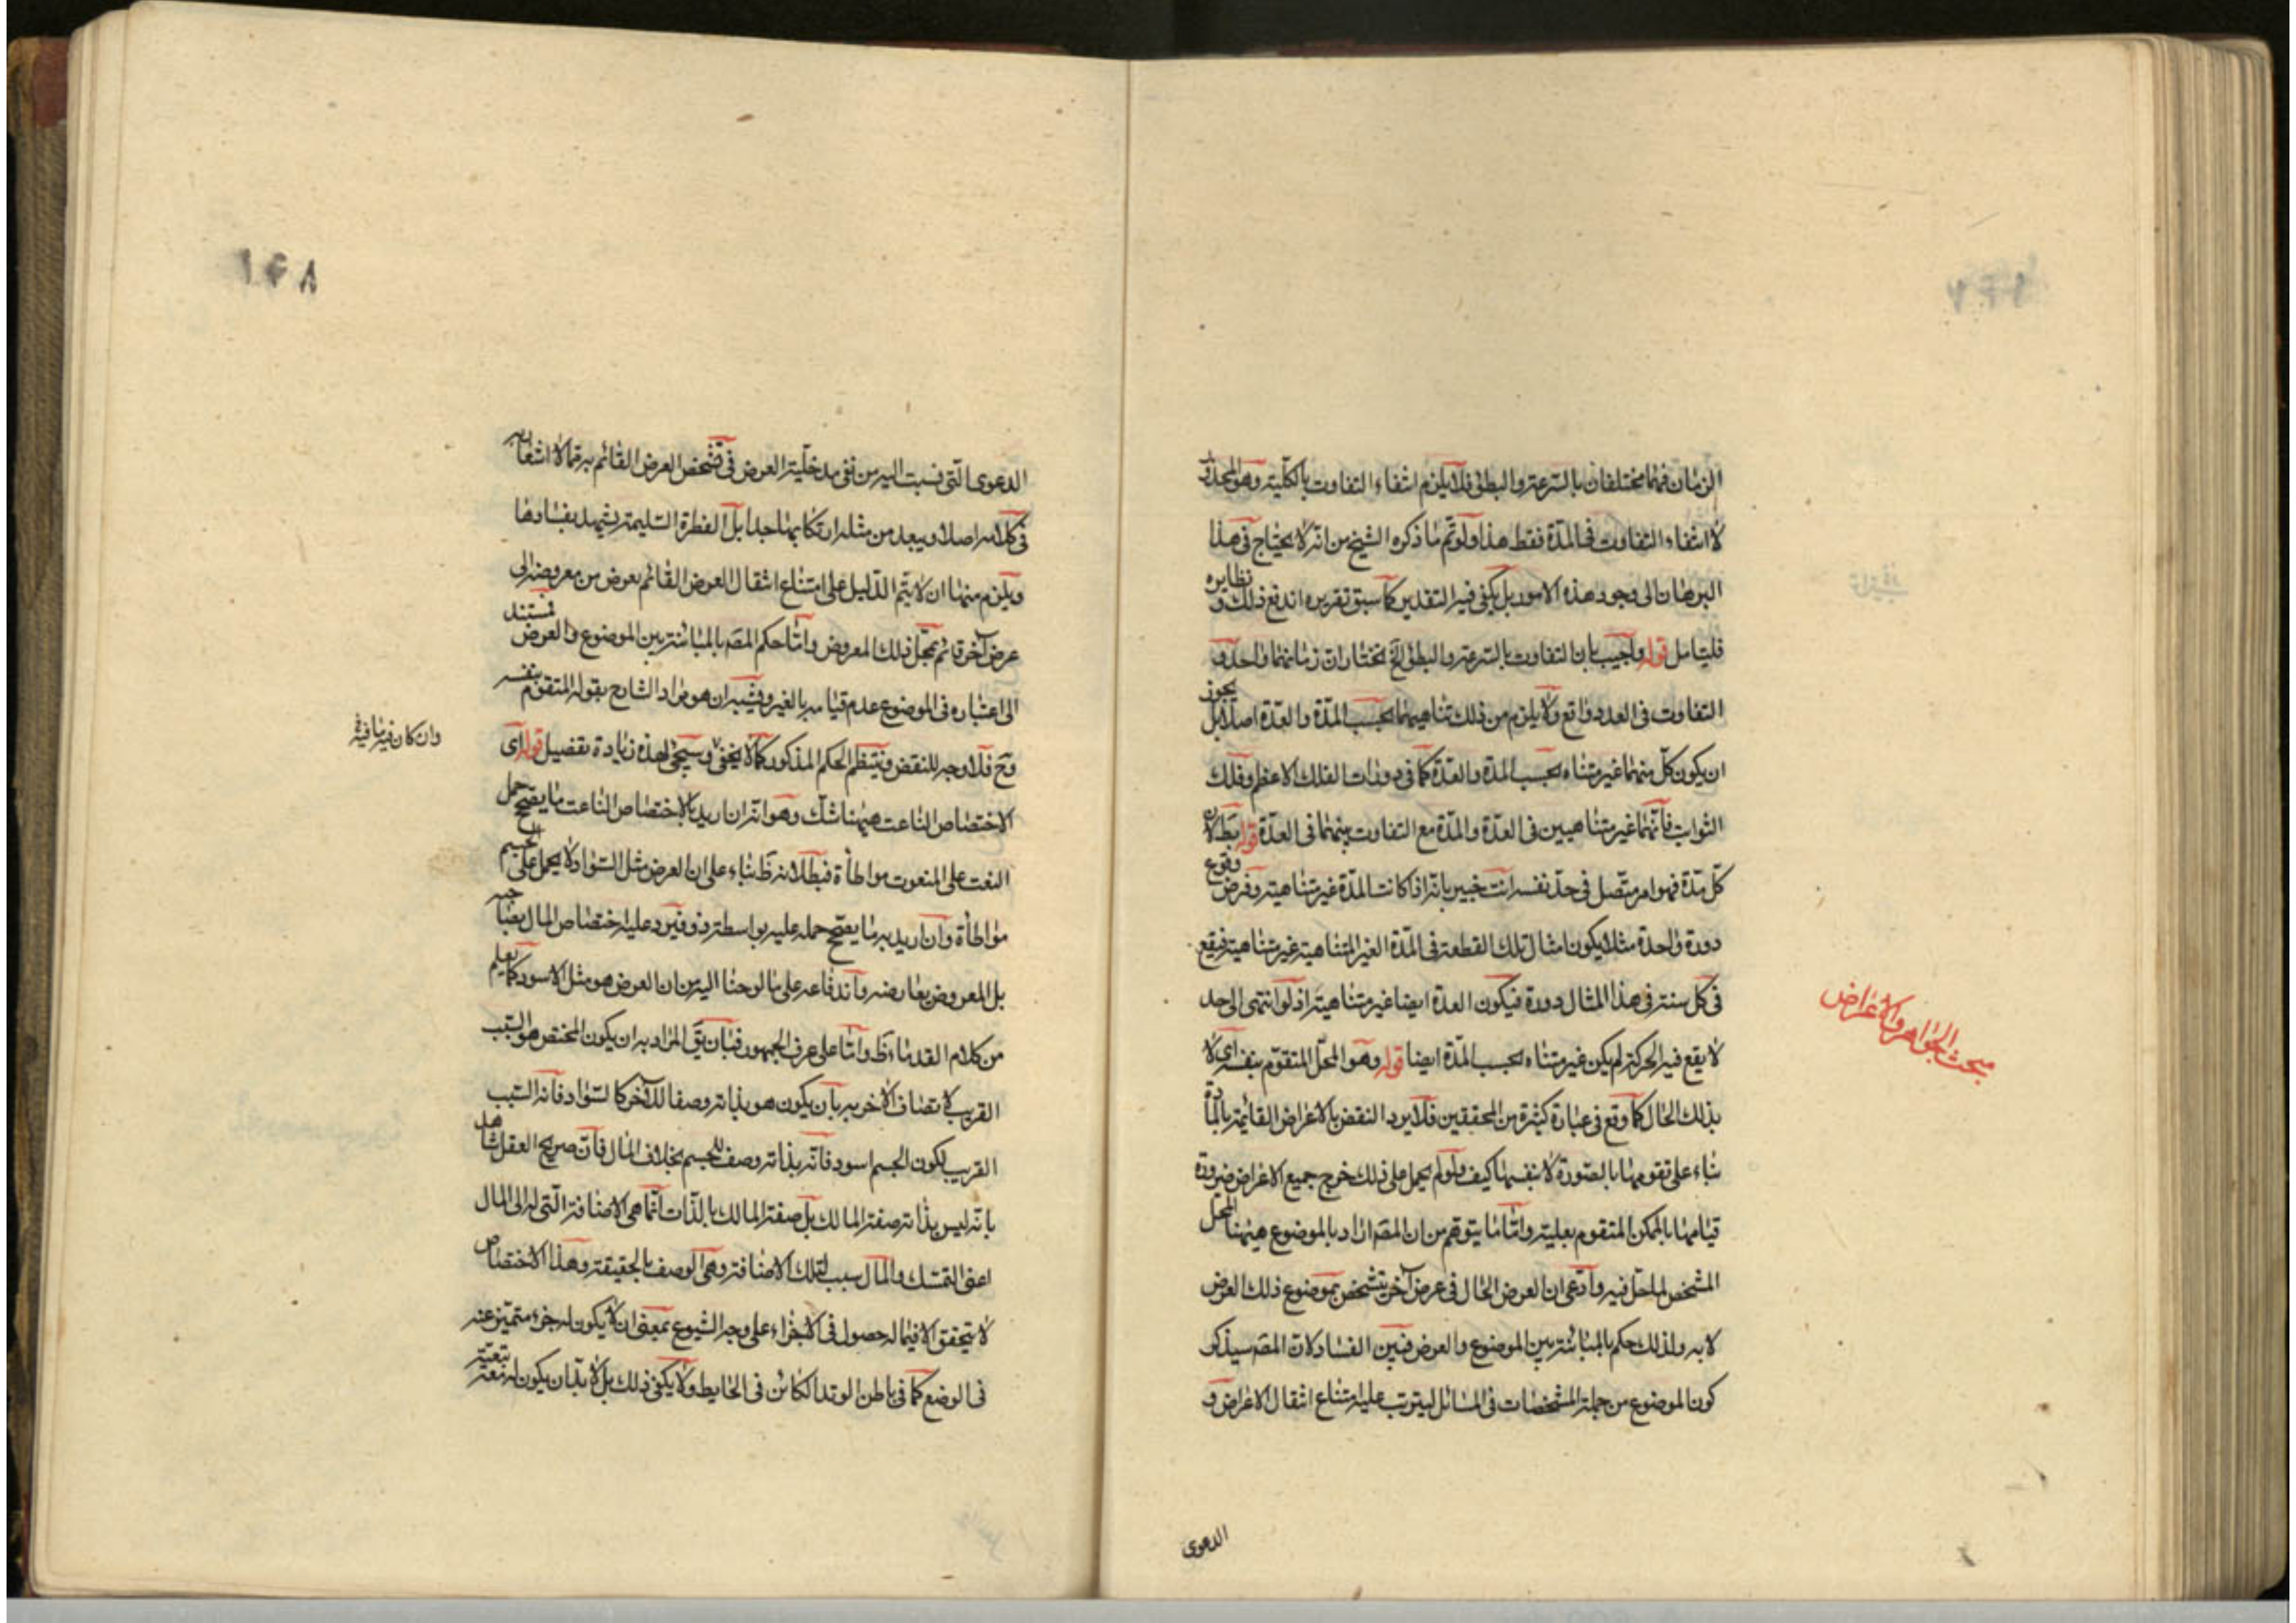 الزمان فهما مختلفان بالسرعة والبطئ فلا يلزم انتفاء التفاوت بالكلية وهو المحذور
لا انتفاء التفاوت فى المدة فقط هذا ولو تم ما ذكره الشيخ من انه لا يحتاج فى هذا
البرهان الى وجود هذه الامور بل يكفى فيه التقدير كما سبق تقريره اندفع ذلك و نظايره
فليتامل قوله واجيب بان التفاوت بالسرعة والبطئ الخ نختار ان زمانهما واحد و
التفاوت فى العدد واقع ولا يلزم من ذلك تناهيهما بحسب المدة والعدة اصلا بل يجوز
ان يكون كل منهما غير متناه بحسب المدة والعدة كما فى دورات الفلك الاعظم وفلك
الثوابت فانهما غير متناهيين فى العدة والمدة مع التفاوت بينهما فى العدة قوله بطلان
كل مدة فهو امر متصل فى حد نفسه انت خبير بانه اذا كانت المدة غير متناهية وفرض وقوع
دورة واحدة مثلا يكون امثال تلك القطعة فى المدة الغير المتناهية غير متناهية فيقع
فى كل سنة فى هذا المثال دورة فيكون العدة ايضا غير متناهية اذ لو انتهى الى حد
لا يقع فيه الحركة لم يكن غير متناه بحسب المدة ايضا قوله وهو المحل المتقوم بنفسه اى لا
بذلك الحال كما وقع فى عبارة كثيرة من المحققين فلا يرد النقض بالاعراض القائمة بالمادة
بناء على تقومها بالصورة لا بنفسها كيف ولو لم يحمل على ذلك خرج جميع الاعراض ضرورة
قيامها بالممكن المتقوم بعليته واما ما يتوهم من ان المصه اراد بالموضوع هيهنا المحل
المشخص لما حل فيه وادعى ان العرض الحال فى عرض آخر يتشخص بموضوع ذلك العرض
لا به ولذلك حكم بالمباينة بين الموضوع والعرض فبين الفساد لان المصه سيذكر
كون الموضوع من جملة المشخصات فى المسائل ليترتب عليه امتناع انتقال الاعراض و
الدعوى
مبحث الجواهر والاعراض
١٤٨
الدعوى التى نسبت اليه من نفى مدخلية العرض فى تشخص العرض القائم به مما لا اشعار به
فى كلامه اصلا ويبعد من مثله ارتكابها جدا بل الفطرة السليمة يشهد بفسادها
ويلزم منها ان لا يتم الدليل على امتناع انتقال العرض القائم بعرض من معروضه الى
عرض آخر قائم بمحل ذلك المعروض واما حكم المصه بالمباينة بين الموضوع والعرض فمستند
الى اعتباره فى الموضوع عدم قيامه بالغير ويشبه ان هو مراد الشارح بقوله المتقوم بنفسه
وح فلا وجه للنقض وينتظم الحكم المذكور كما لا يخفى وسيجئ لهذه زيادة تفصيل قوله اى
وان كان فيه ما فيه
الاختصاص الناعت هيهنا شك وهو انه ان اريد بالاختصاص الناعت ما يصح حمل
النعت على المنعوت مواطأة فبطلانه ظ بناء على ان العرض مثل السواد لا يحمل على الجسم
مواطأة وان اريد به ما يصح حمله عليه بواسطة ذو فيرد عليه اختصاص المال بصاحبه
بل المعروض بعارضه واندفاعه على ما لوحنا اليه من ان العرض هو مثل الاسود كما يعلم
من كلام القدماء ظ واما على عرف الجمهور فبان يق المراد به ان يكون المختص هو السبب
القريب لاتصاف الآخر به بان يكون هو بذاته وصفا للآخر كالسواد فانه السبب
القريب لكون الجسم اسود فانه بذاته وصف للجسم بخلاف المال فان صريح العقل شاهد
بانه ليس بذاته صفة المالك بل صفة المالك بالذات انما هى الاضافة التى له الى المال
اعنى التملك والمال سبب لتلك الاضافة وهى الوصف بالحقيقة وهذا الاختصاص
لا يتحقق الا فيما له حصول فى الاجزاء على وجه الشيوع بمعنى ان لا يكون له جزء متميز عنه
فى الوضع كما فى باطن الوتد الكائن فى الحايط ولا يكفى ذلك بل لا بد ان يكون له نعته بتبعيته